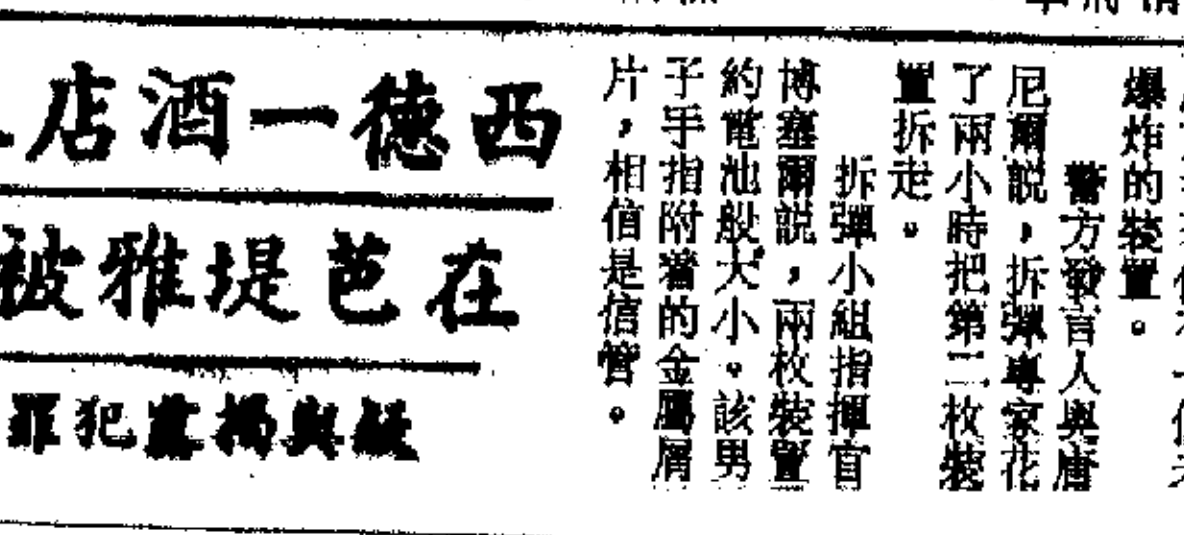 爆炸的裝置。
警方發言人與唐
尼爾説，拆彈專家花
了兩小時把第二枚裝
置拆走。
拆彈小組指揮官
博塞爾説，兩枚裝置
約電池般大小。該男
子手指附着的金屬屑
片，相信是信管。
西德一酒店
在芭堤雅被
疑與揭黨犯罪